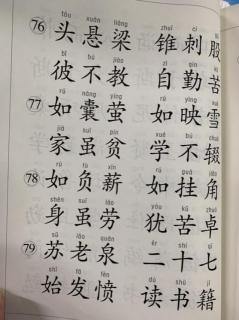 tóu xuán liáng zhuī cì gǔ
76 头悬梁 锥刺股
bǐ bù jiào zì qín kǔ
彼不教 自勤苦
rú náng yíng rú yìng xuě
77 如囊萤 如映雪
jiā suī pín xué bú chuò
家虽贫 学不辍
rú fù xīn rú guà jiǎo
78 如负薪 如挂角
shēn suī láo yóu kǔ zhuó
身虽劳 犹苦卓
sū lǎo quán èr shí qī
79 苏老泉 二十七
shǐ fā fèn dú shū jí
始发愤 读书籍